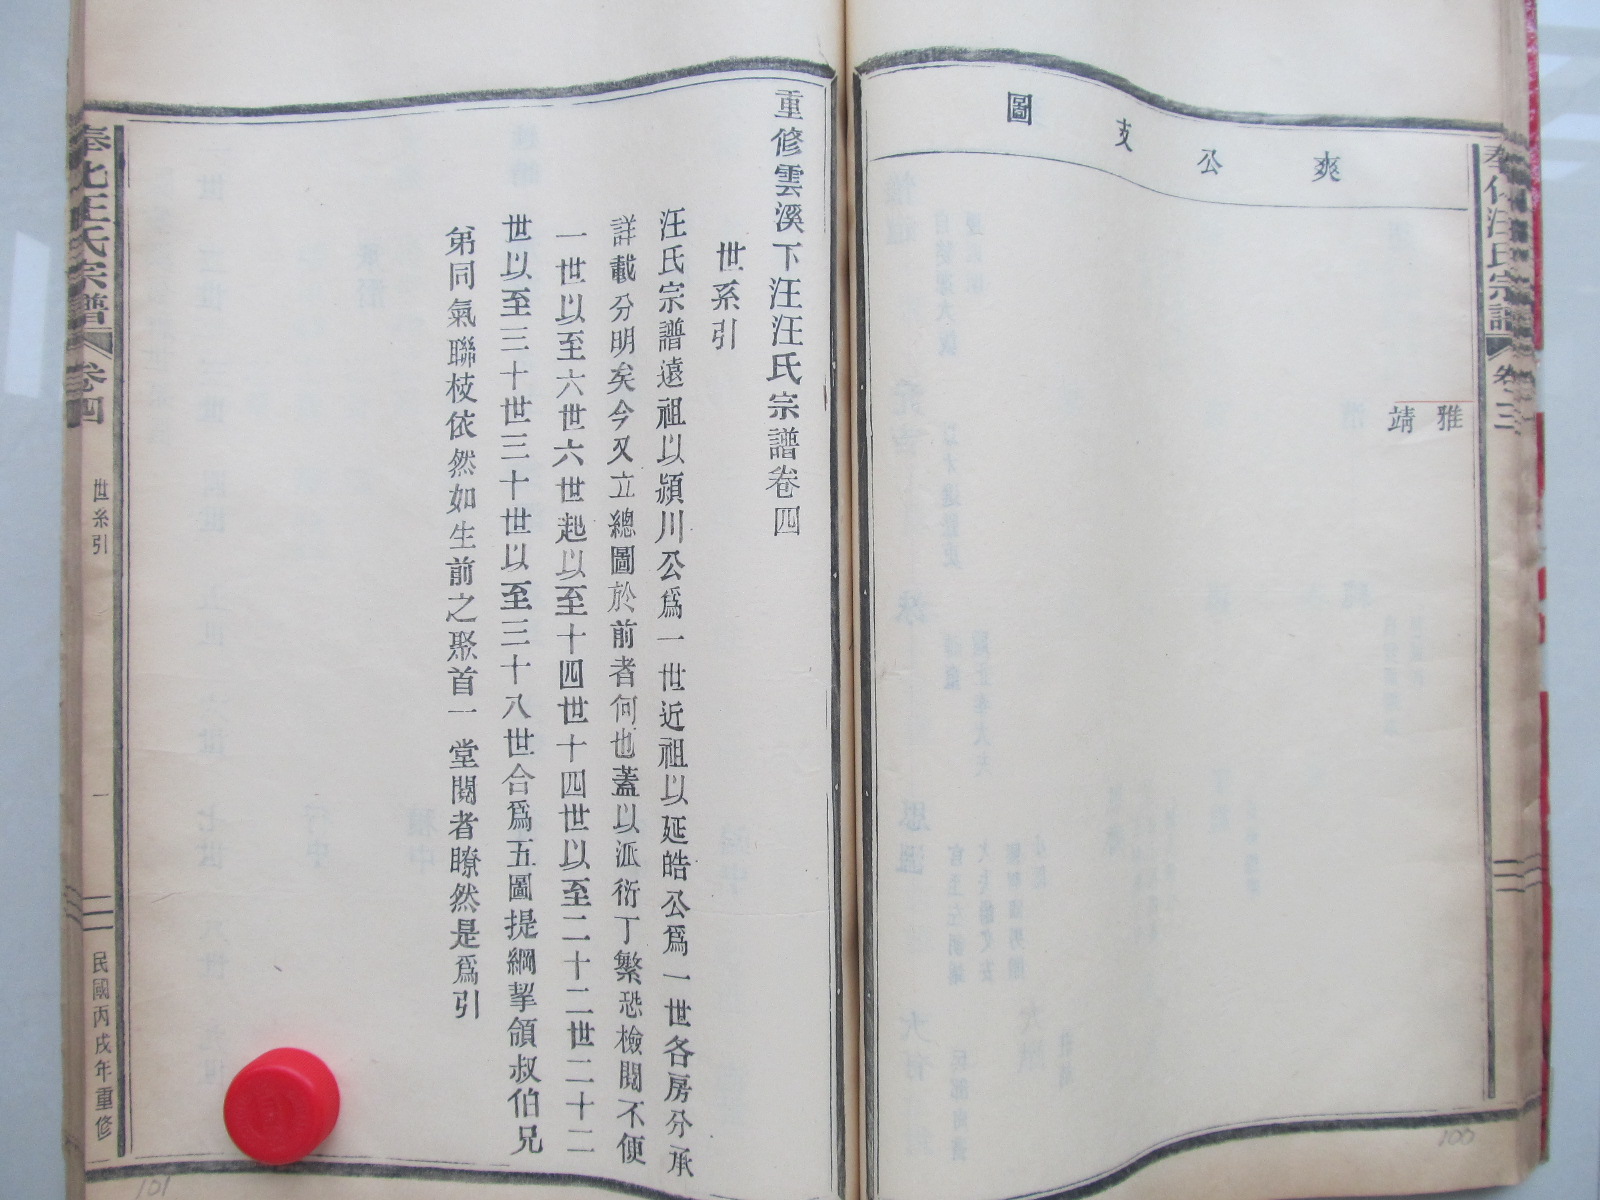 爽公支圖
雅
靖
奉化汪氏宗譜 卷三
重修雲溪下汪汪氏宗譜卷四
世系引
汪氏宗譜遠祖以潁川公爲一世近祖以延皓公爲一世各房分承
詳載分明矣今又立總圖於前者何也蓋以派衍丁繁恐檢閱不便
一世以至六世六世起以至十四世十四世以至二十二世二十二
世以至三十世三十世以至三十八世合爲五圖提綱挈領叔伯兄
第同氣聯枝依然如生前之聚首一堂閱者瞭然是爲引
奉化汪氏宗譜 卷四 世系引 一 民國丙戌年重修
100
101